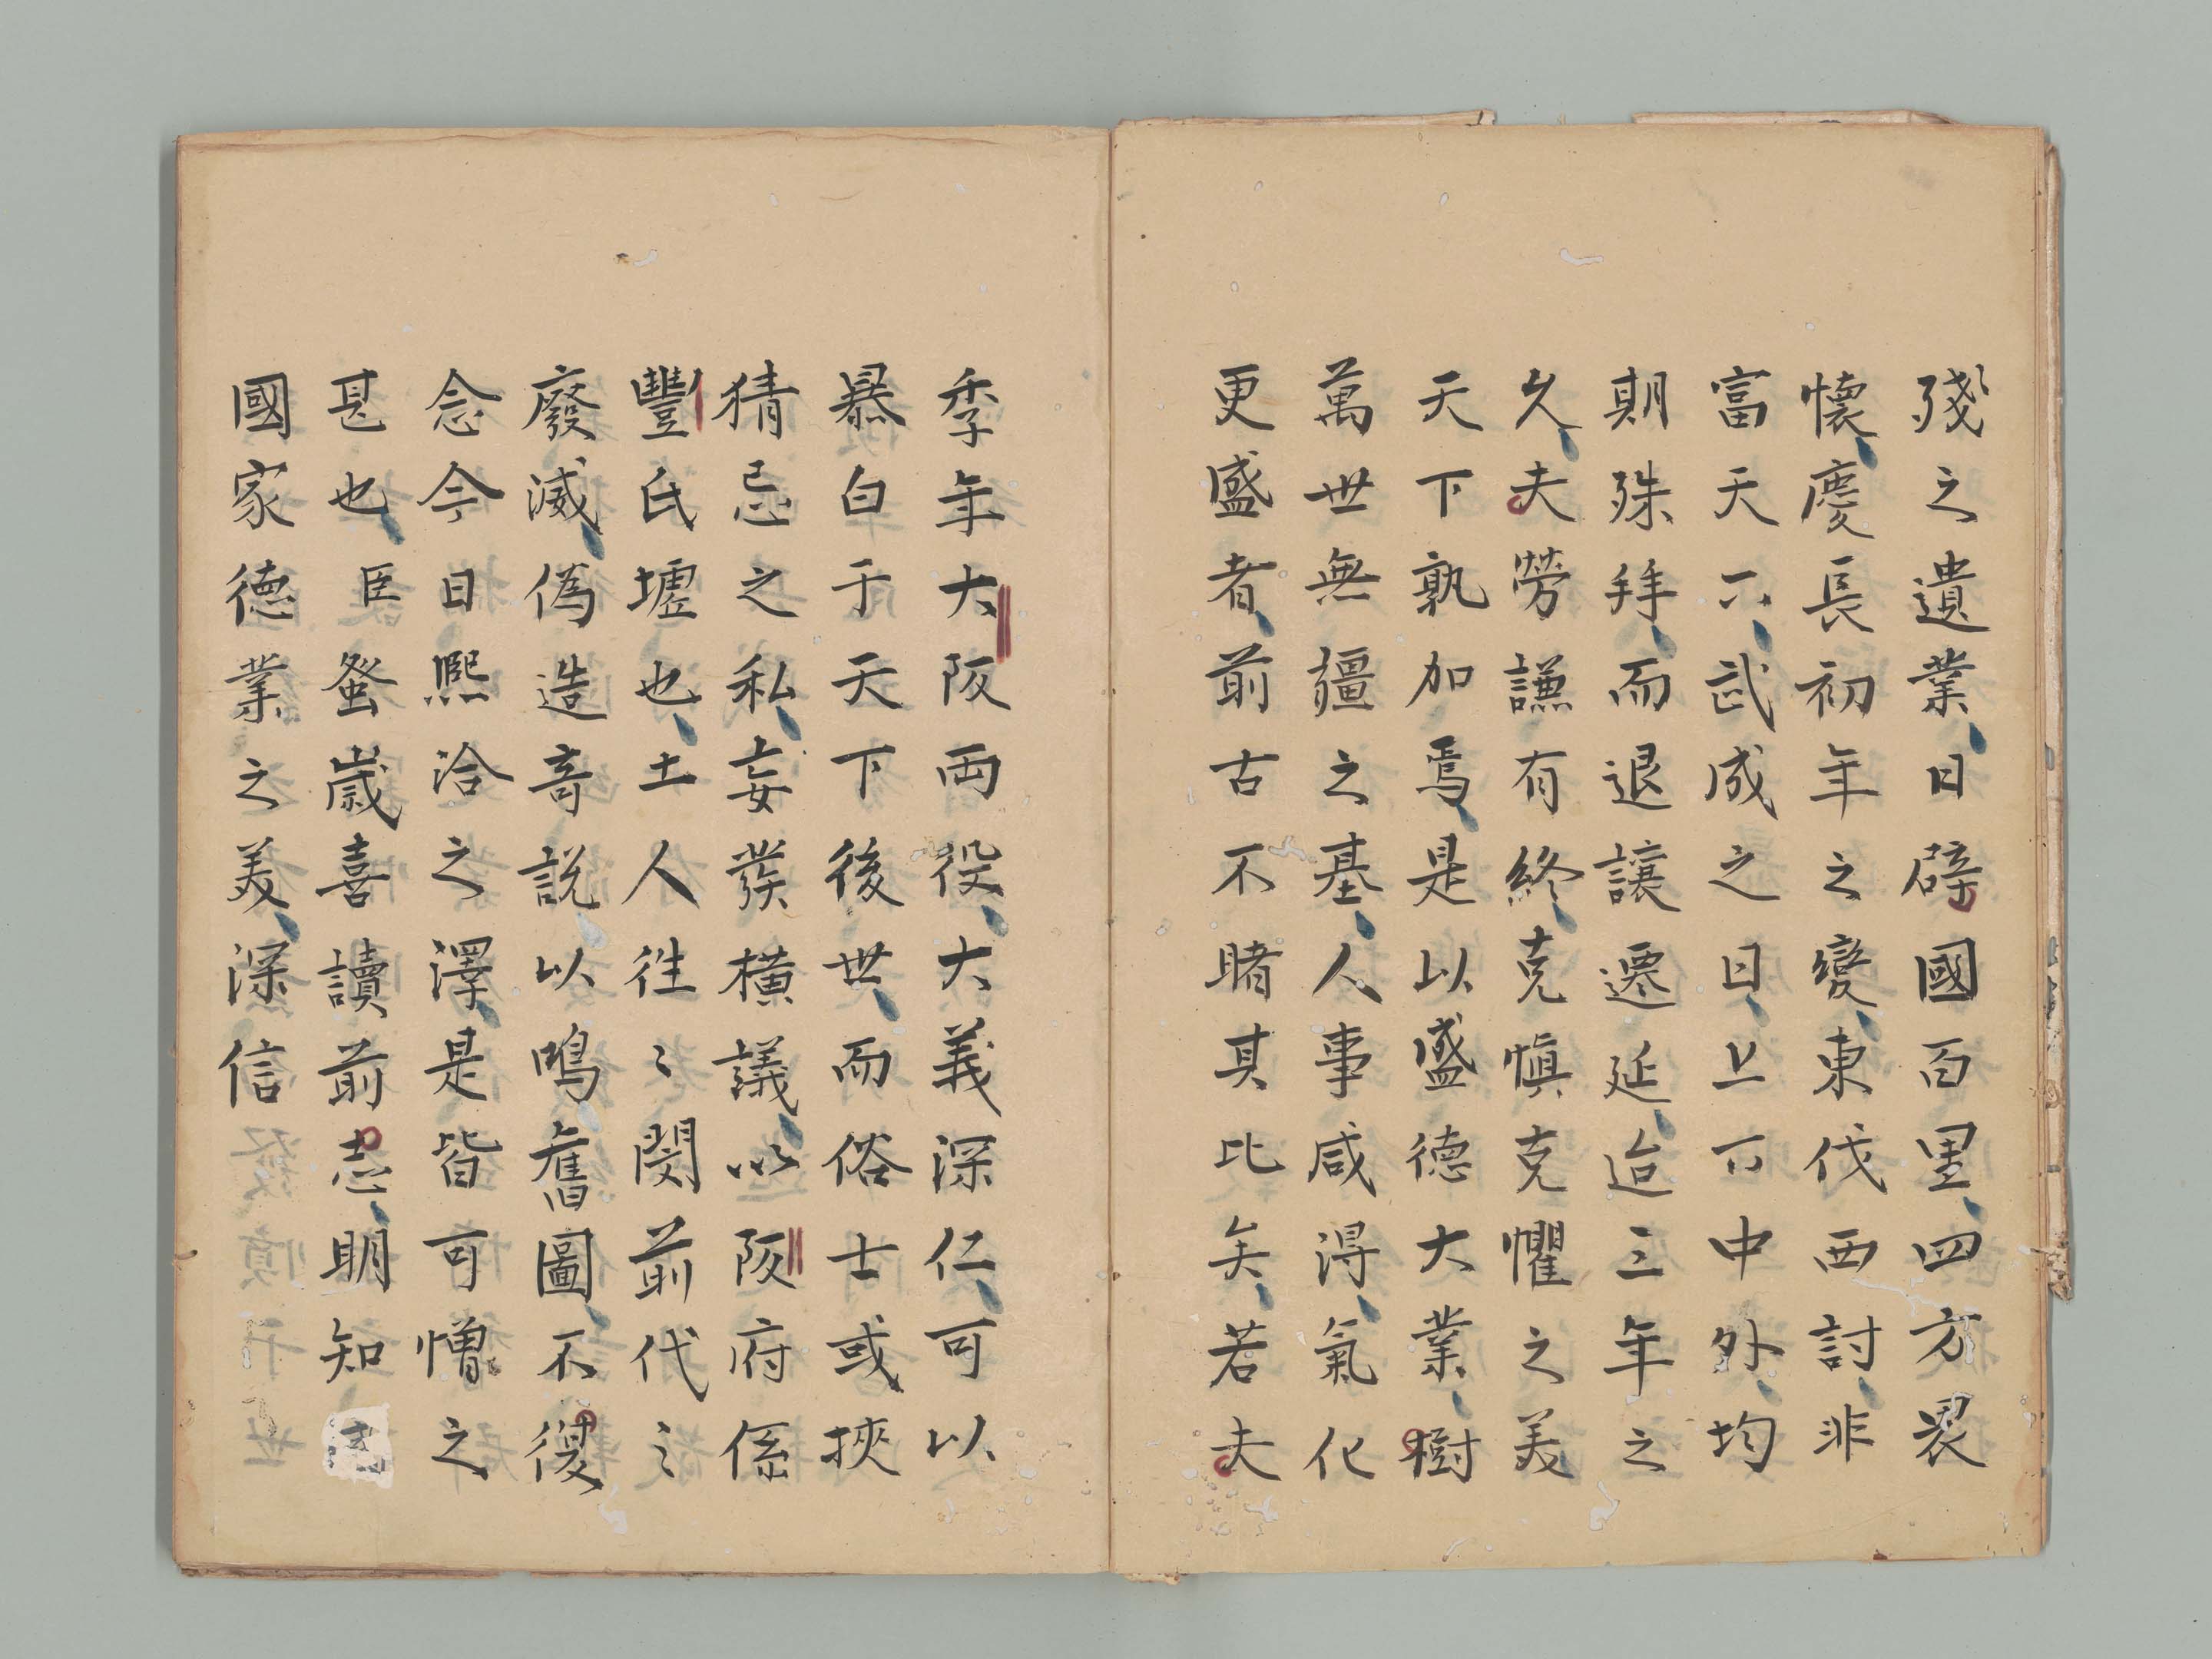 殘之遺業日辟國百里四方畏
懷慶長初年之變東伐西討非
富天下武成之日上下中外均
期殊拜而退讓遷延迨三年之
久夫勞謙有終克慎克懼之美
天下孰加焉是以盛德大業樹
萬世無疆之基人事咸得氣化
更盛者前古不睹其比矣若夫
季年大阪両役大義深仁可以
暴白于天下後世而俗士或挾
猜忌之私妄發橫議以阪府係
豐氏墟也土人往〻閔前代之
廢滅偽造奇説以鳴舊圖不復
念今日熙洽之澤是皆可憎之
甚也臣蚤歲喜讀前志明知
國家德業之美深信